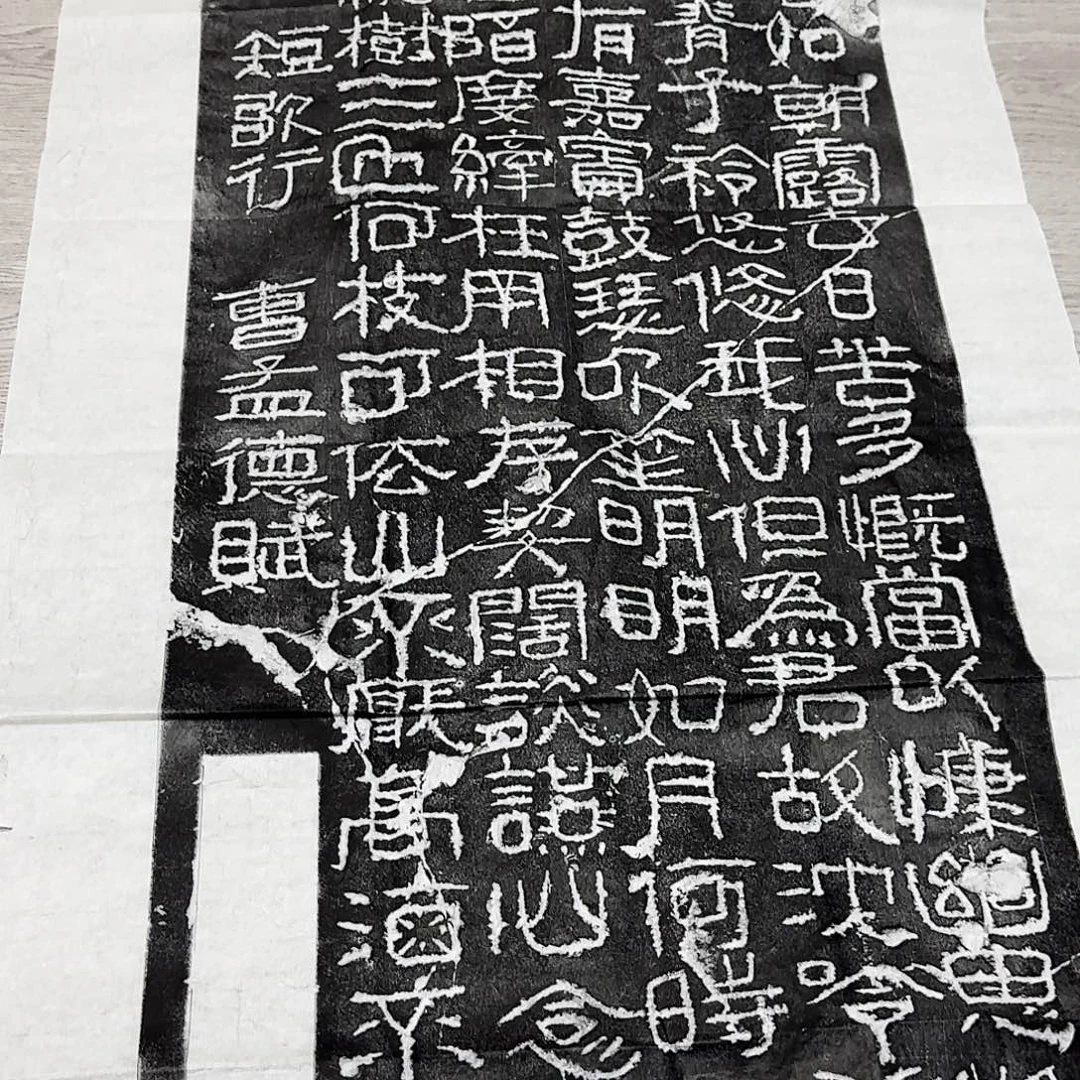 如朝露去日苦多慨當以慷幽思
青子衿悠悠我心但為君故沈吟
有嘉賓鼓瑟吹笙明明如月何時
陌度枉用相存契闊談讌心念
樹三匝何枝可依山不厭高海不
短歌行 曹孟德賦